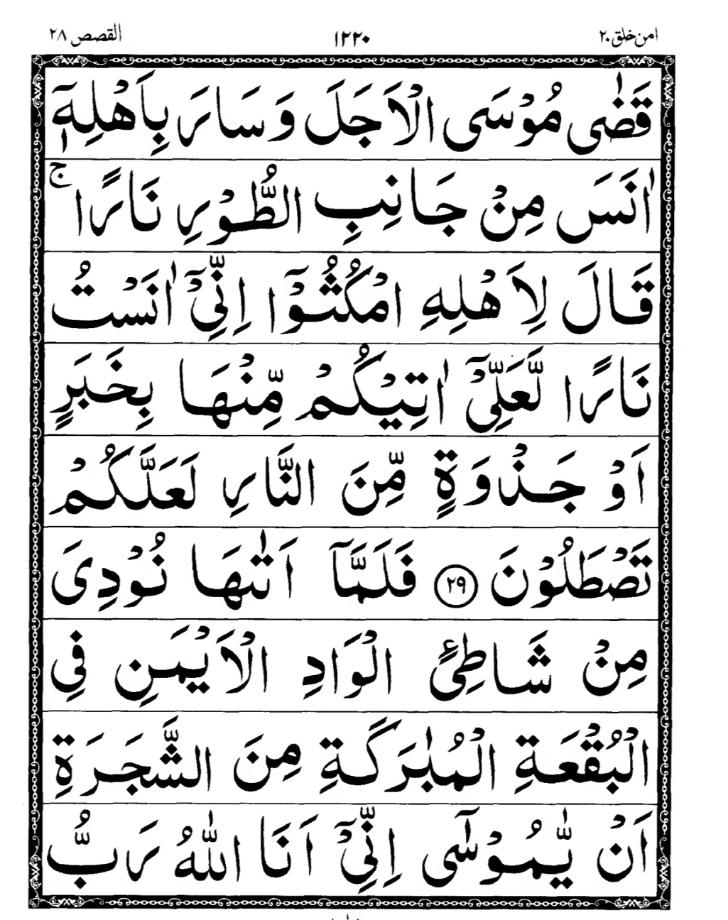 امن خلق ۲۰ ۱۲۲۰ القصص ۲۸
قَضٰى مُوْسَى الْاَجَلَ وَسَارَ بِاَهْلِهٖۤ
اٰنَسَ مِنْ جَانِبِ الطُّوْرِ نَارًا ۚ
قَالَ لِاَهْلِهِ امْكُثُوْۤا اِنِّىْۤ اٰنَسْتُ
نَارًا لَّعَلِّىْۤ اٰتِيْكُمْ مِّنْهَا بِخَبَرٍ
اَوْ جَذْوَةٍ مِّنَ النَّارِ لَعَلَّكُمْ
تَصْطَلُوْنَ ۝۲۹ فَلَمَّاۤ اَتٰىهَا نُوْدِىَ
مِنْ شَاطِئِ الْوَادِ الْاَيْمَنِ فِى
الْبُقْعَةِ الْمُبٰرَكَةِ مِنَ الشَّجَرَةِ
اَنْ يّٰمُوْسٰۤى اِنِّىْۤ اَنَا اللّٰهُ رَبُّ